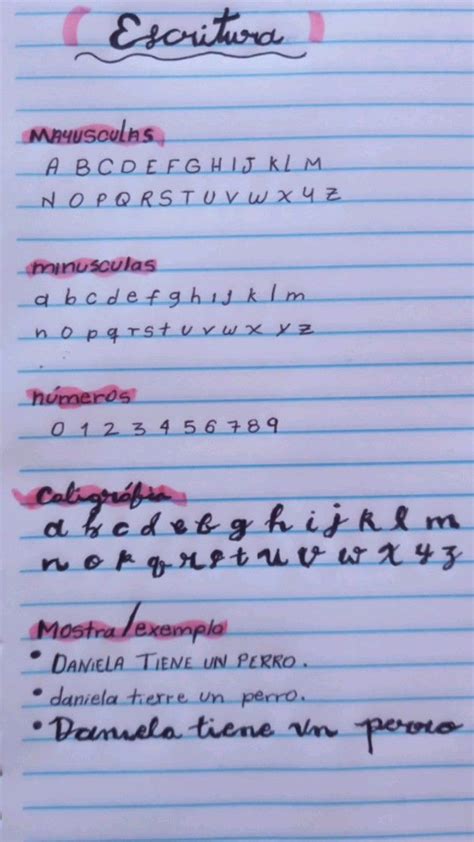 Escritura
MAYUSCULAS
A B C D E F G H I J K L M
N O P Q R S T U V W X Y Z
minusculas
a b c d e f g h i j k l m
n o p q r s t u v w x y z
números
0 1 2 3 4 5 6 7 8 9
Caligráfia
a b c d e f g h i j k l m
n o p q r s t u v w x y z
Mostra/exemplo
• DANIELA TIENE UN PERRO.
• daniela tierre un perro.
• Daniela tiene un perro